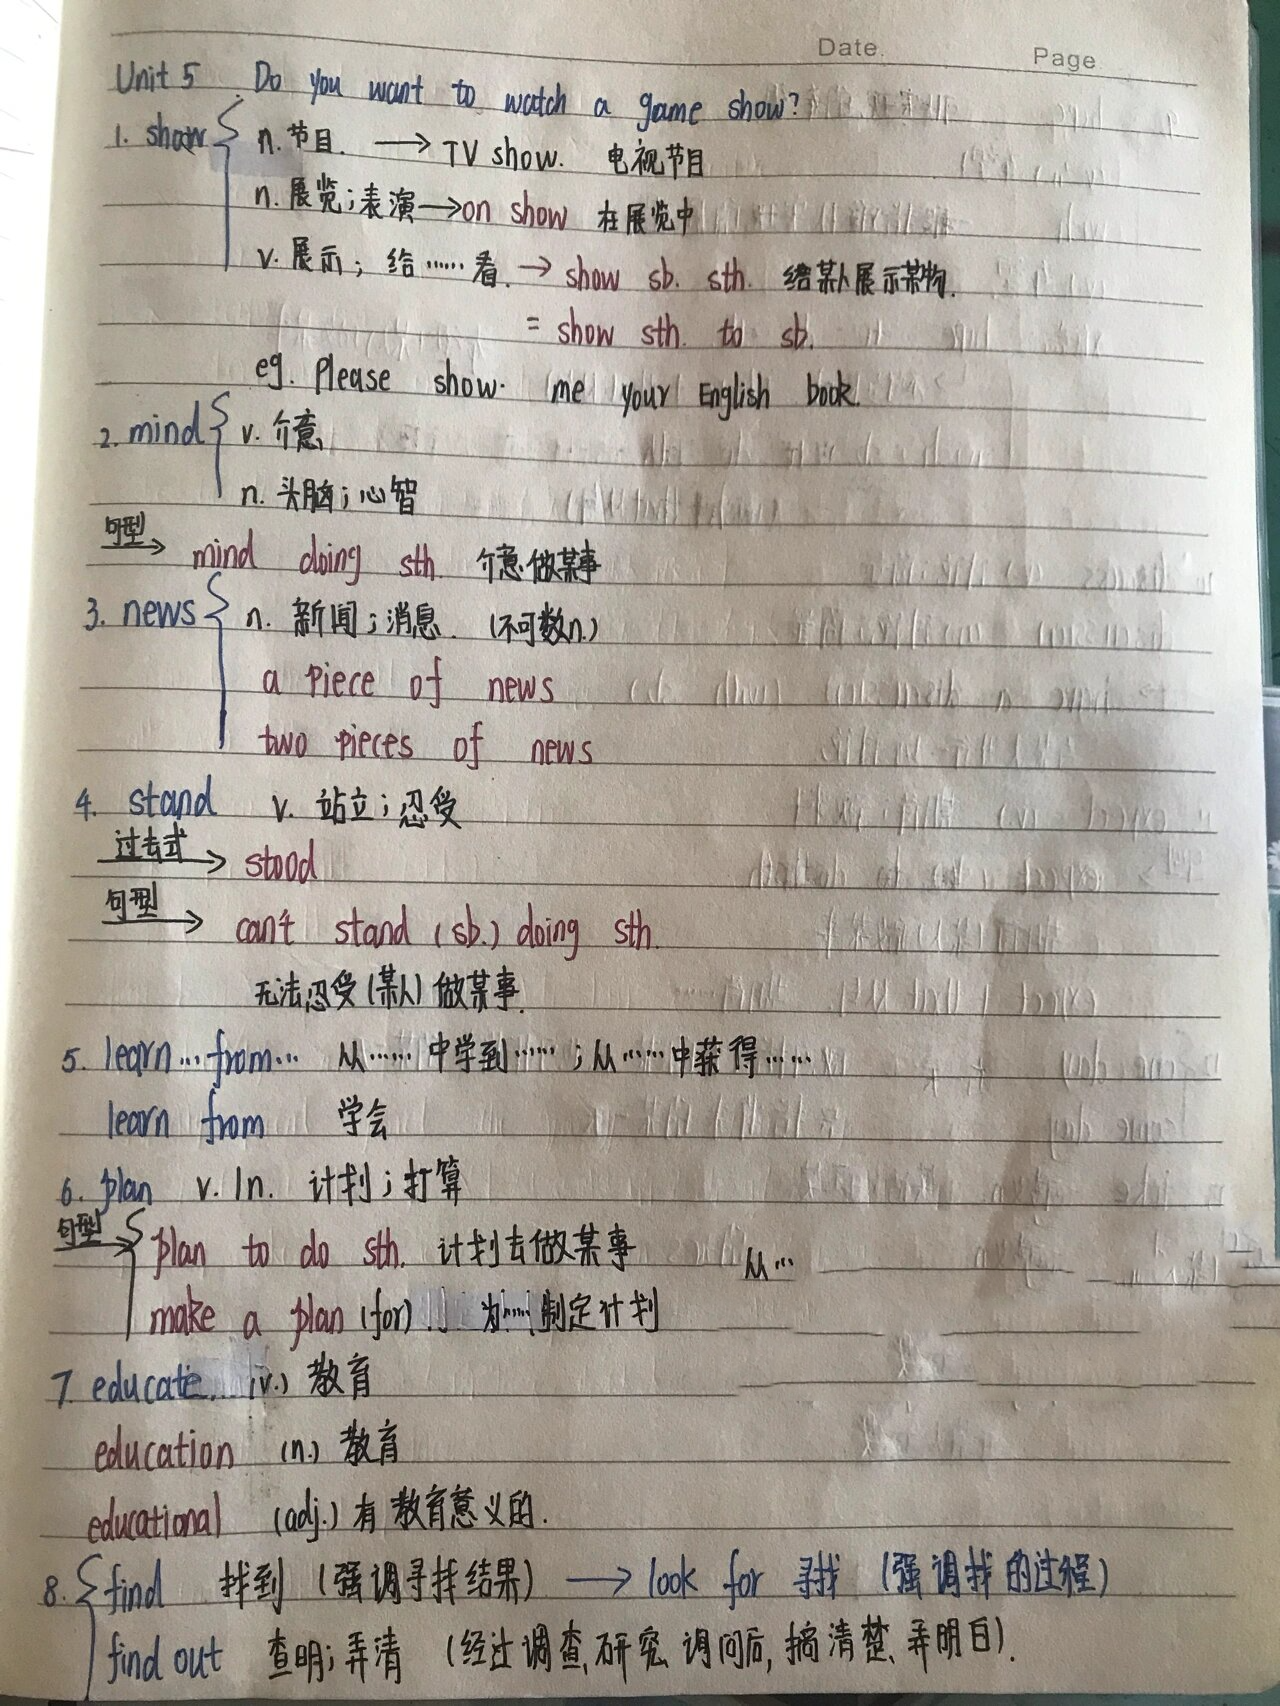 Date. Page
Unit 5 Do you want to watch a game show?
1. show n. 节目. → TV show. 电视节目
n. 展览；表演 → on show 在展览中
v. 展示；给……看. → show sb. sth. 给某人展示某物.
= show sth. to sb.
eg. Please show me your English book.
2. mind v. 介意
n. 头脑；心智
句型→ mind doing sth. 介意做某事
3. news n. 新闻；消息. (不可数n.)
a piece of news
two pieces of news
4. stand v. 站立；忍受
过去式→ stood
句型→ can't stand (sb.) doing sth.
无法忍受(某人)做某事.
5. learn…from… 从……中学到……；从……中获得……
learn from 学会
6. plan v. / n. 计划；打算
句型→ plan to do sth. 计划去做某事
从…
make a plan (for) 为……制定计划
7. educate (v.) 教育
education (n.) 教育
educational (adj.) 有教育意义的.
8. find 找到 (强调寻找结果) → look for 寻找 (强调找的过程)
find out 查明；弄清 (经过调查、研究、询问后, 搞清楚、弄明白).